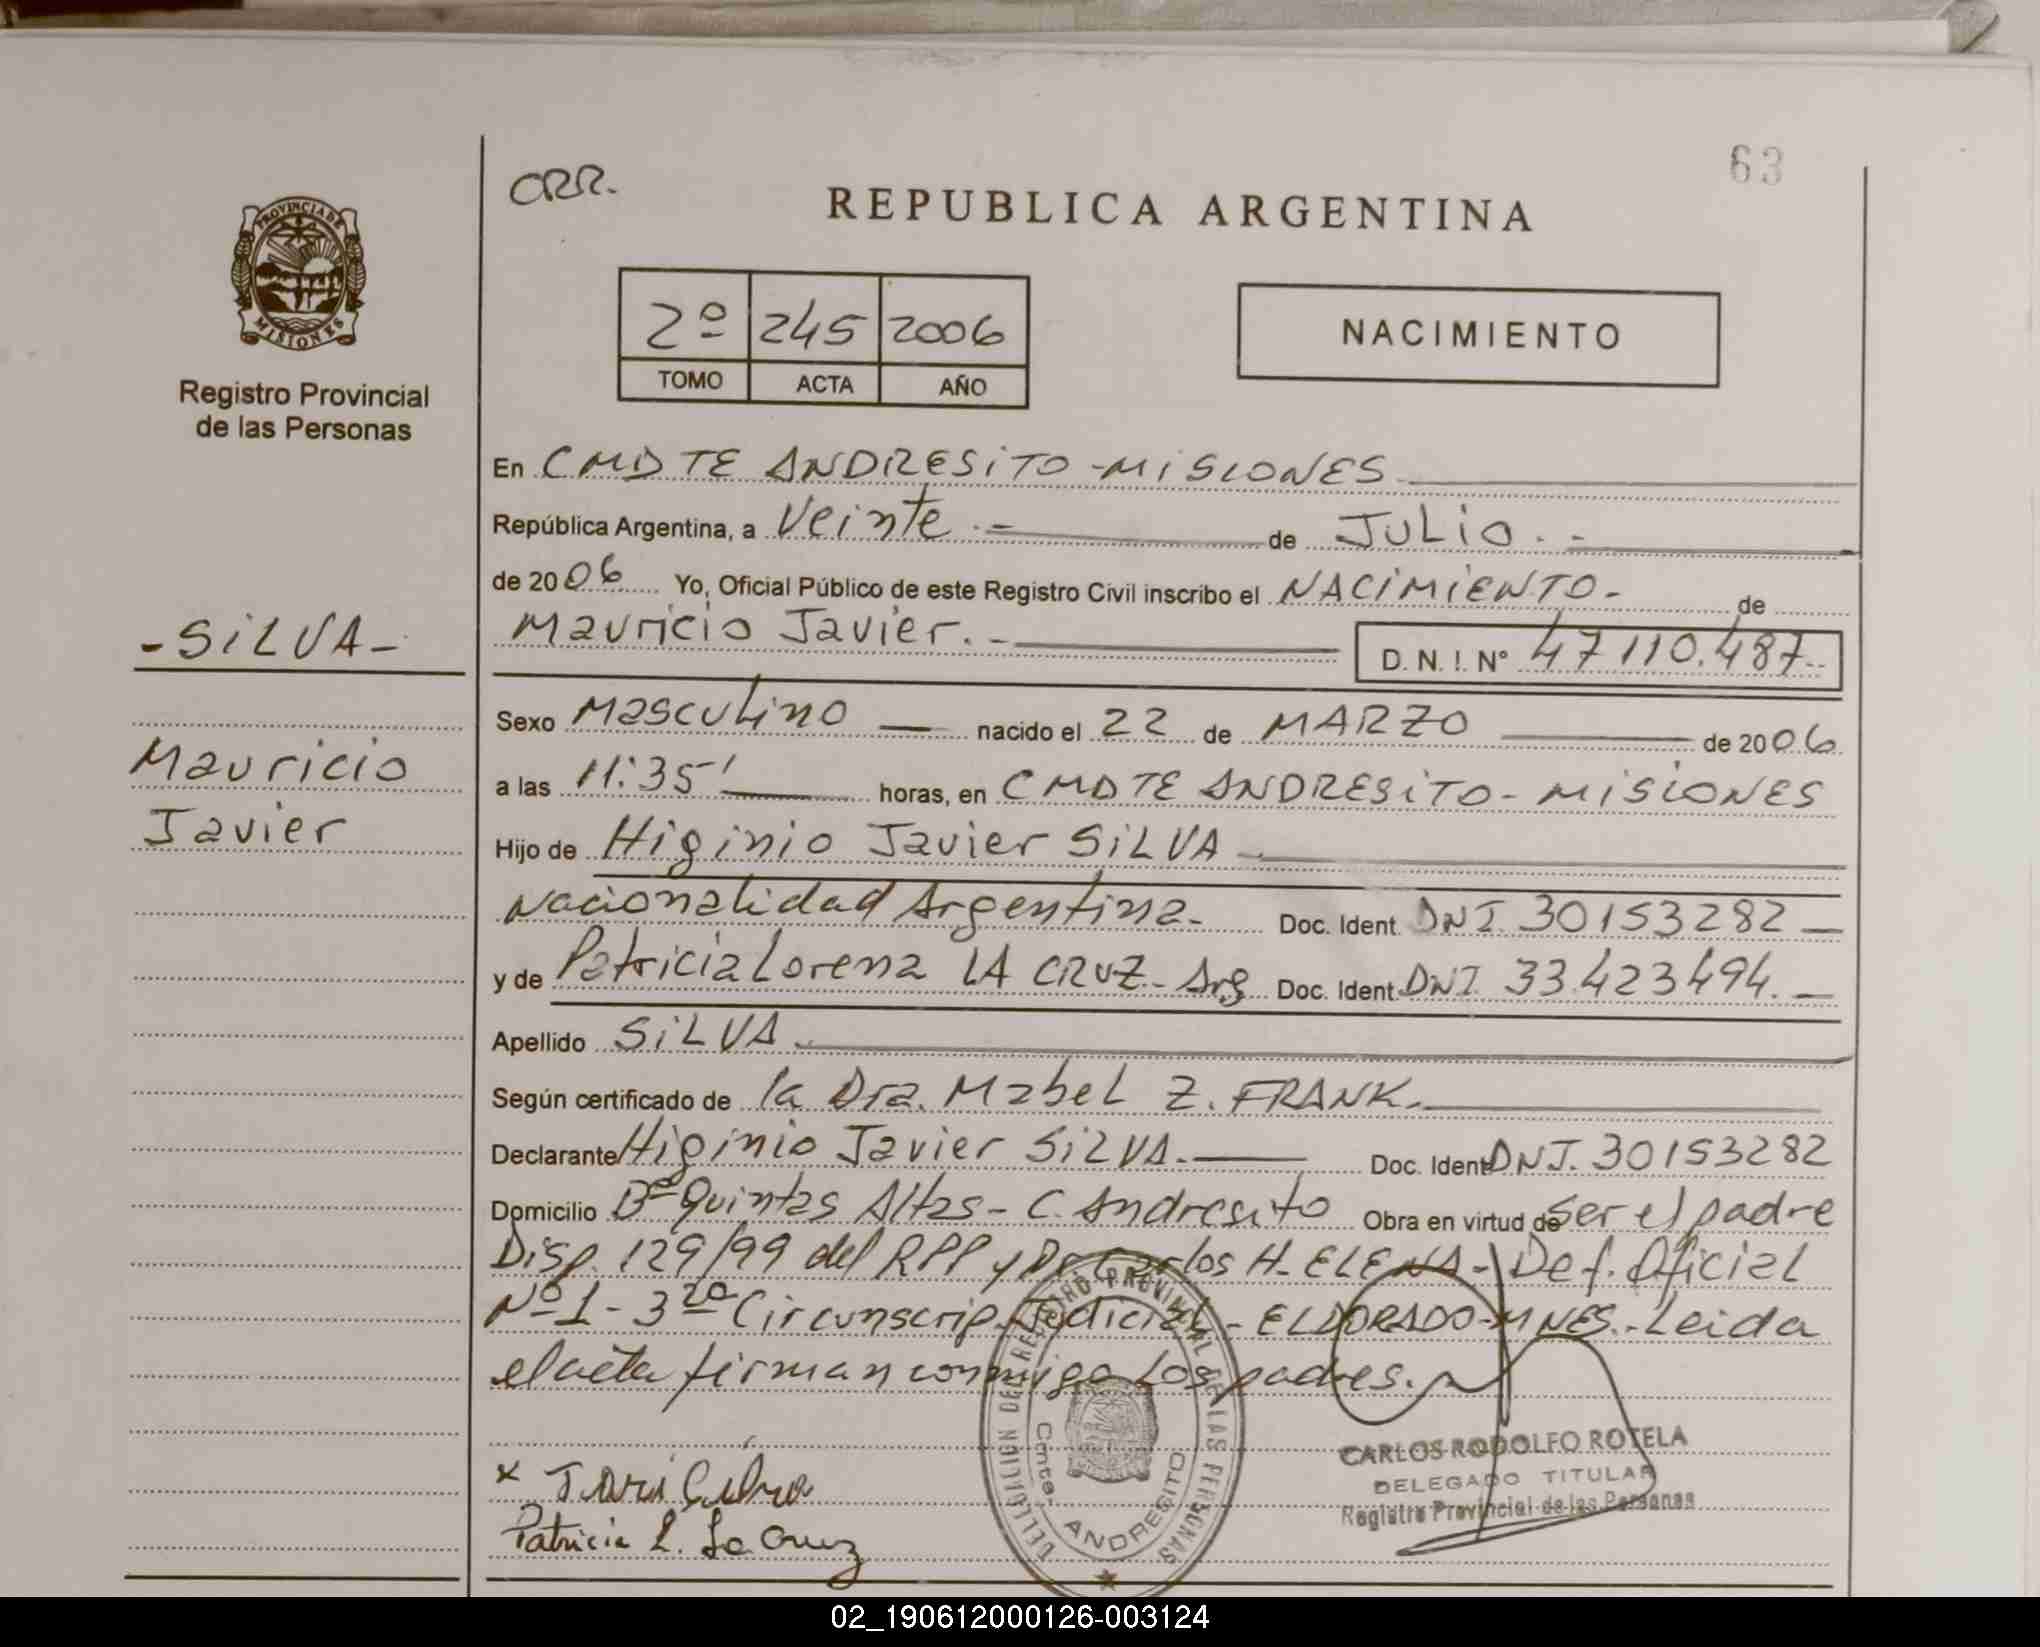 63
CRR.
REPUBLICA ARGENTINA
PROVINCIA DE
MISIONES
Registro Provincial
de las Personas
2º 245 2006
TOMO ACTA AÑO
NACIMIENTO
En CMDTE ANDRESITO - MISIONES
República Argentina, a Veinte.- de JULIO.-
de 2006 Yo, Oficial Público de este Registro Civil inscribo el NACIMIENTO- de
Mauricio Javier.- D. N. I. Nº 47110.487
- SILVA -
Mauricio
Javier
Sexo Masculino nacido el 22 de MARZO de 2006
a las 11:35' horas, en CMDTE ANDRESITO - MISIONES
Hijo de Higinio Javier SILVA
Nacionalidad Argentina- Doc. Ident. DNI. 30153282
y de Patricia Lorena LA CRUZ- Arg Doc. Ident. DNI 33.423494.
Apellido SILVA
Según certificado de la Dra. Mabel Z. FRANK.
Declarante Higinio Javier SILVA. Doc. Ident DNI. 30153282
Domicilio Bº Quintas Altas - C. Andresito Obra en virtud de Ser el padre
Disp. 129/99 del RPP y Dr Carlos H. ELENA - Def. Oficial
Nº 1 - 3ra Circunscrip. Judicial - ELDORADO - MNES.- Leida
el acta firman conmigo los padres.
x Javi Silva
Patricia L. La Cruz
DELEGACION DEL REGISTRO PROVINCIAL DE LAS PERSONAS
Cmte. ANDRESITO
CARLOS RODOLFO ROTELA
DELEGADO TITULAR
Registro Provincial de las Personas
02_190612000126-003124